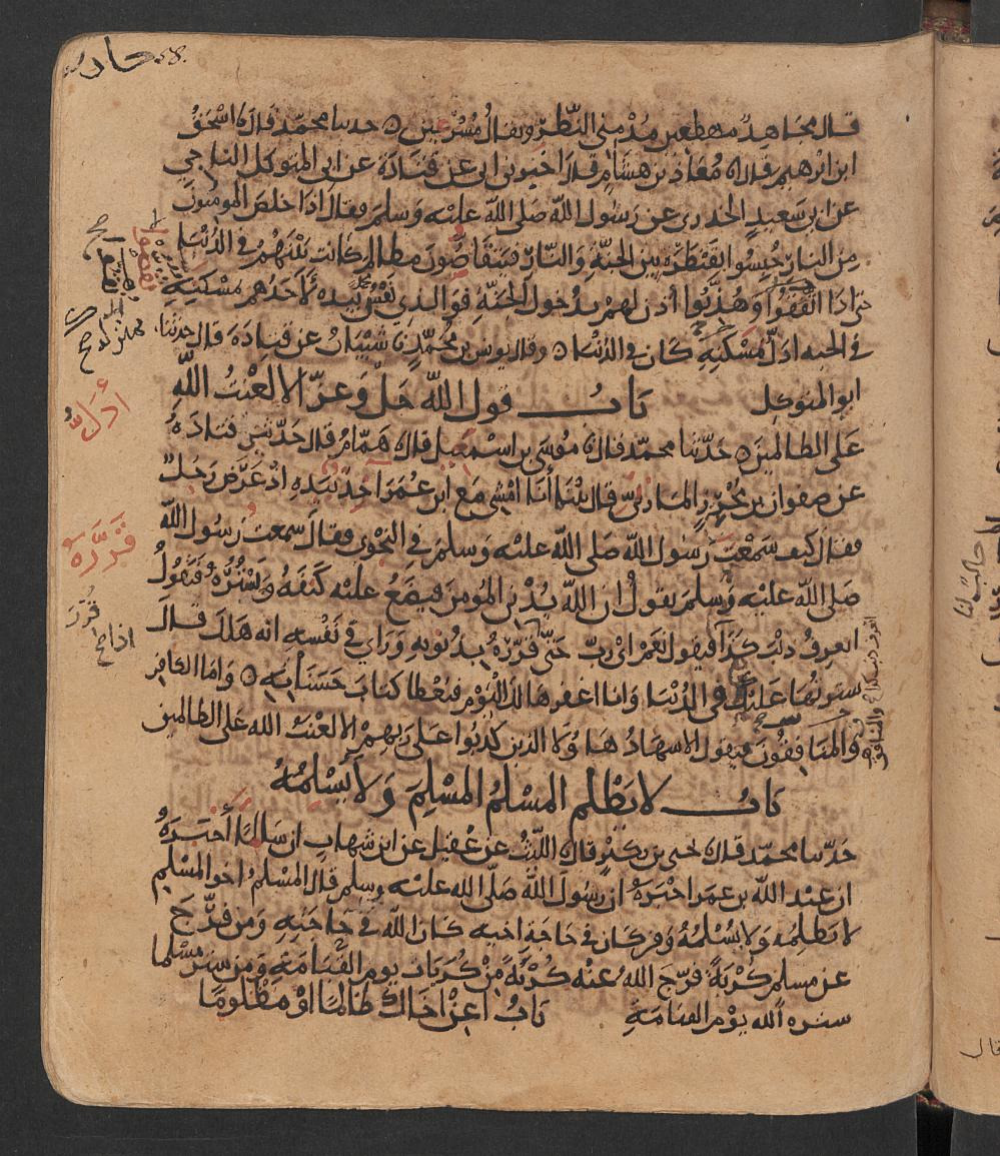 قال مجاهد مهطعين مدمني النظر ويقال مسرعين ه حدثنا محمد قال نا اسحق
ابن ابرهيم قال نا معاذ بن هشام قال اخبرني ابي عن قتادة عن ابي المتوكل الناجي
عن ابي سعيد الخدري عن رسول الله صلى الله عليه وسلم وقال اذا خلص المومنون
من النار حبسوا بقنطرة بين الجنة والنار فيتقاصون مظالم كانت بينهم في الدنيا
حتى اذا نقوا وهذبوا أذن لهم بدخول الجنة فوالذي نفس بيده لاحدهم بمسكنه
في الجنه ادل بمسكنه كان في الدنيا ه وقال يونس بن محمد نا شيبان عن قتادة قال حدثنا
ابو المتوكل باب قول الله جل وعز الا لعنت الله
على الظالمين ه حدثنا محمد قال نا موسى بن اسمعيل قال نا همام قال حدثني قتادة
عن صفوان بن محرز المازني قال بينا أنا امشي مع ابن عمر اخذ بيده اذ عرض رجل
فقال كيف سمعت رسول الله صلى الله عليه وسلم في النجوى فقال سمعت رسول الله
صلى الله عليه وسلم يقول ان الله يدني المومن فيضع عليه كنفه ويستره فيقول
اتعرف ذنب كذا فيقول نعم اي رب حتى قرره بذنوبه وراى في نفسه انه هلك قال
سترتها عليك في الدنيا وانا اغفرها لك اليوم فيعطا كتاب حسناته ه واما الكافر
والمنافقون فيقول الاشهاد هاولا الذين كذبوا على ربهم الا لعنت الله على الظالمين
باب لا يظلم المسلم المسلم ولا يسلمه
حدثنا محمد قال نا يحيى بن بكير قال نا الليث عن عقيل عن ابن شهاب ان سالما أخبره
ان عبد الله بن عمر اخبره ان رسول الله صلى الله عليه وسلم قال المسلم اخو المسلم
لا يظلمه ولا يسلمه ومن كان في حاجة اخيه كان الله في حاجته ومن فرج
عن مسلم كربة فرج الله عنه كربة من كربات يوم القيامة ومن ستر مسلما
ستره الله يوم القيامة باب اعن اخاك ظالما او مظلوما
أدل
قرره